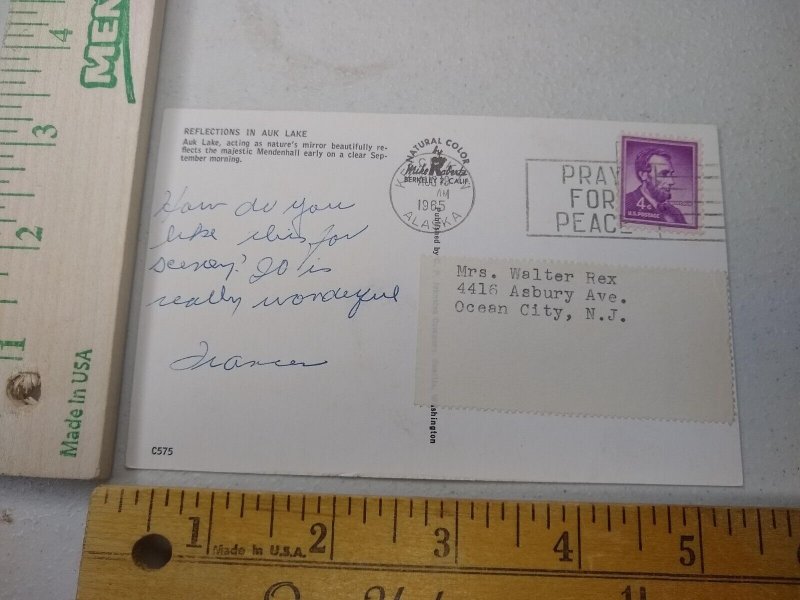 REFLECTIONS IN AUK LAKE
Auk Lake, acting as nature's mirror beautifully re-
flects the majestic Mendenhall early on a clear Sep-
tember morning.
NATURAL COLOR
by
Mike Roberts
BERKELEY 2, CALIF.
KETCHIKAN
AM
1965
ALASKA
PRAY
FOR
PEACE
4c
U.S. POSTAGE
How do you
like this for
scenery? It is
really wonderful
Frances
Mrs. Walter Rex
4416 Asbury Ave.
Ocean City, N.J.
Published by
Washington
C575
MEN
4
3
2
1
Made in USA
1 2 3 4 5
Made in U.S.A.